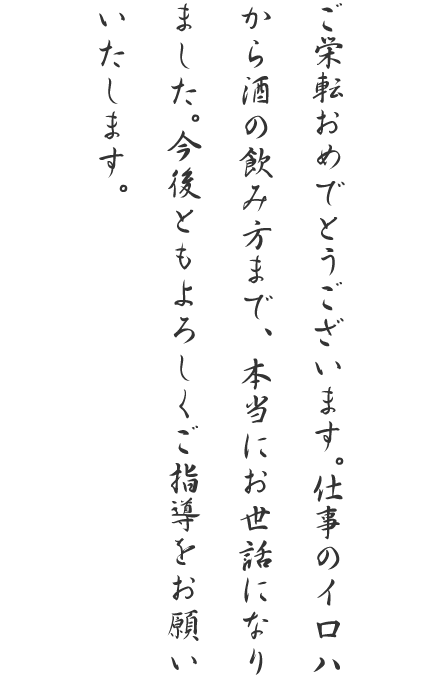 ご栄転おめでとうございます。仕事のイロハ
から酒の飲み方まで、本当にお世話になり
ました。今後ともよろしくご指導をお願い
いたします。